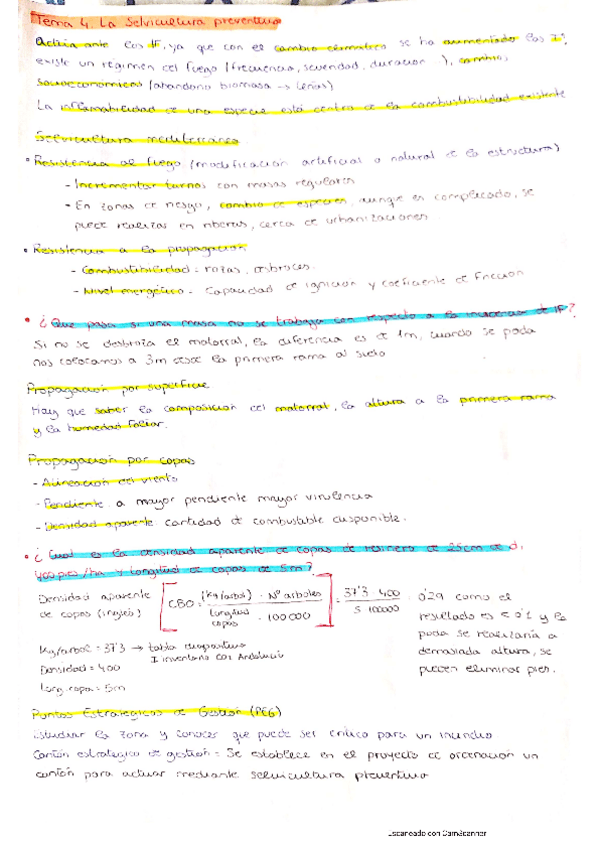 Tema 4. La Selvicultura preventiva
Actúa ante los IF, ya que con el cambio climático se ha aumentado los IF,
existe un régimen del fuego (frecuencia, severidad, duración...), cambios
socioeconómicos (abandono biomasa -> leñas)
La inflamabilidad de una especie está dentro de la combustibilidad existente
Selvicultura mediterránea
• Resistencia al fuego (modificación artificial o natural de la estructura)
- Incrementar turnos con masas regulares
- En zonas de riesgo, cambio de especies, aunque es complicado, se
puede realizar en riberas, cerca de urbanizaciones.
• Resistencia a la propagación
- Combustibilidad = rozas, desbroces.
- Nivel energético. Capacidad de ignición y coeficiente de fricción
• ¿Que pasa si una masa no se trabaja con respecto a la incidencia de IF?
Si no se desbroza el matorral, la diferencia es de 1m, cuando se poda
nos colocamos a 3m desde la primera rama al suelo
Propagación por superficie
Hay que saber la composición del matorral, la altura a la primera rama
y la humedad foliar.
Propagación por copas
- Alineación del viento
- Pendiente a mayor pendiente mayor virulencia
- Densidad aparente cantidad de combustible disponible.
• ¿Cual es la densidad aparente de copas de resinero de 25cm de d,
400 pies/ha y longitud de copas de 5m?
Densidad aparente
de copas (inglés)
[CBD = (kg/arbol) · Nº arboles / longitud copas · 100000] = 37'3 · 400 / 5 · 100000 = 0'29 como el
resultado es < 0'1 y la
poda se realizaría a
demasiada altura, se
pueden eliminar pies.
Kg/arbol = 37'3 → tabla diapositiva
I inventario COI Andalucía
Densidad = 400
Long. copa = 5m
Puntos Estratégicos de Gestión (PEG)
Estudiar la zona y conocer que puede ser crítico para un incendio
Cantón estrategico de gestión = Se establece en el proyecto de ordenación un
cantón para actuar mediante selvicultura preventiva
Escaneado con CamScanner